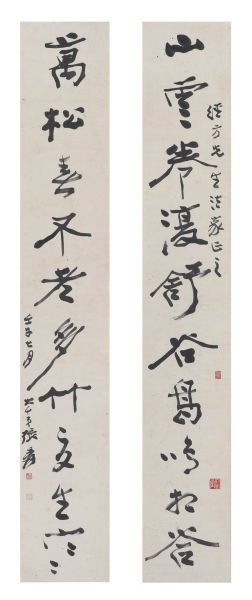 山雲卷復舒谷鳥鳴相答
經方先生法家正之
萬松春不老多竹夏生寒
壬子七月
大千弟張爰